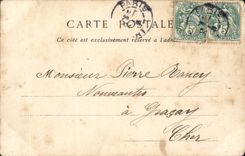 CARTE POSTALE
PARIS
Ce côté est exclusivement réservé à l'adre
Monsieur Pierre
Nouveautés
à Graçay
Cher